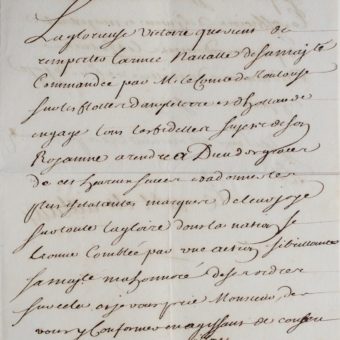 La glorieuse victoire que vient de
remporter l'armée navalle de sa majté
Commandée par M. le Comte de Toulouse
sur les flottes d'angleterre et d'hollande
engage tous les fidelles sujets de son
Royaume a rendre a Dieu des graces
de cet heureux succez et a donner les
plus éclatantes marques de leur joye
sur toute la gloire dont la nation se
trouve Comblée par une action si brillante
sa majté m'a honnoré de ses ordres
sur cela et je vous prie Monsieur de
vous y Conformer en agissant de concert